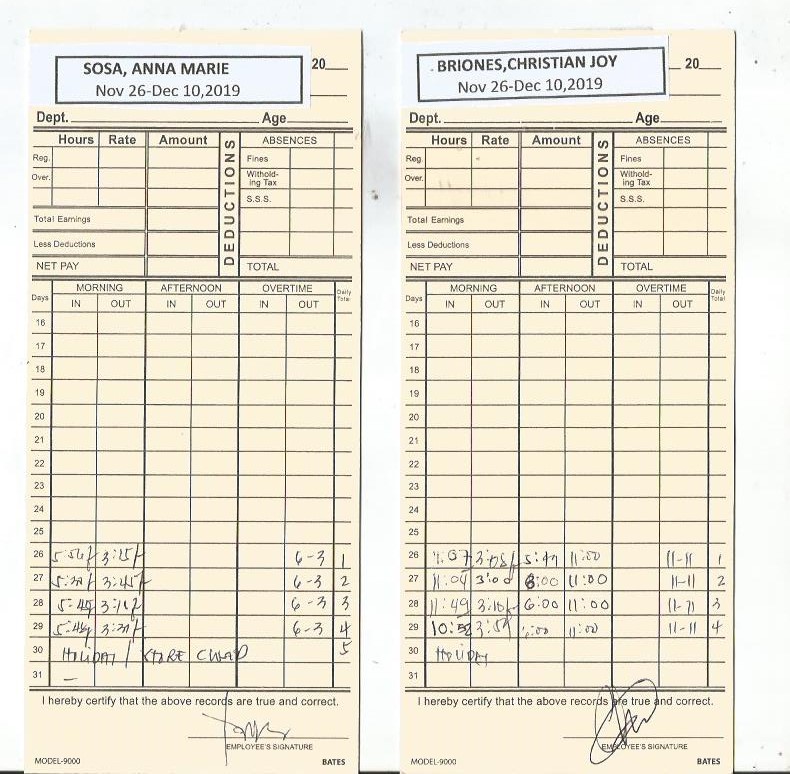 SOSA, ANNA MARIE
Nov 26-Dec 10,2019
20
Dept. Age
Hours Rate Amount DEDUCTIONS ABSENCES
Reg. Fines
Over. Withold-
ing Tax
S.S.S.
Total Earnings
Less Deductions
NET PAY TOTAL
Days MORNING AFTERNOON OVERTIME Daily Total
IN OUT IN OUT IN OUT
16
17
18
19
20
21
22
23
24
25
26 6-3 1
27 6-3 2
28 6-3 3
29 6-3 4
30 HOLIDAY / STORE 5
31
I hereby certify that the above records are true and correct.
EMPLOYEE'S SIGNATURE
MODEL-9000 BATES
BRIONES,CHRISTIAN JOY
Nov 26-Dec 10,2019
20
Dept. Age
Hours Rate Amount DEDUCTIONS ABSENCES
Reg. Fines
Over. Withold-
ing Tax
S.S.S.
Total Earnings
Less Deductions
NET PAY TOTAL
Days MORNING AFTERNOON OVERTIME Daily Total
IN OUT IN OUT IN OUT
16
17
18
19
20
21
22
23
24
25
26 11:00 11-11 1
27 11:04 3:00 6:00 11:00 11-11 2
28 11:49 6:00 11:00 3
29 11:00 11-11 4
30 HOLIDAY
31
I hereby certify that the above records are true and correct.
EMPLOYEE'S SIGNATURE
MODEL-9000 BATES